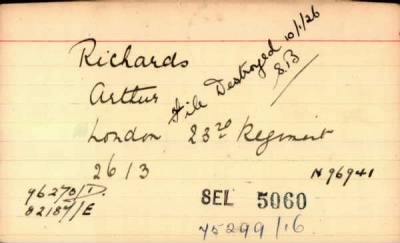 Richards
Arthur
File Destroyed 10/1/26
S.B
London 23rd Regiment
2613
N96941
96270/D.
82187/E
SEL 5060
75299/16.